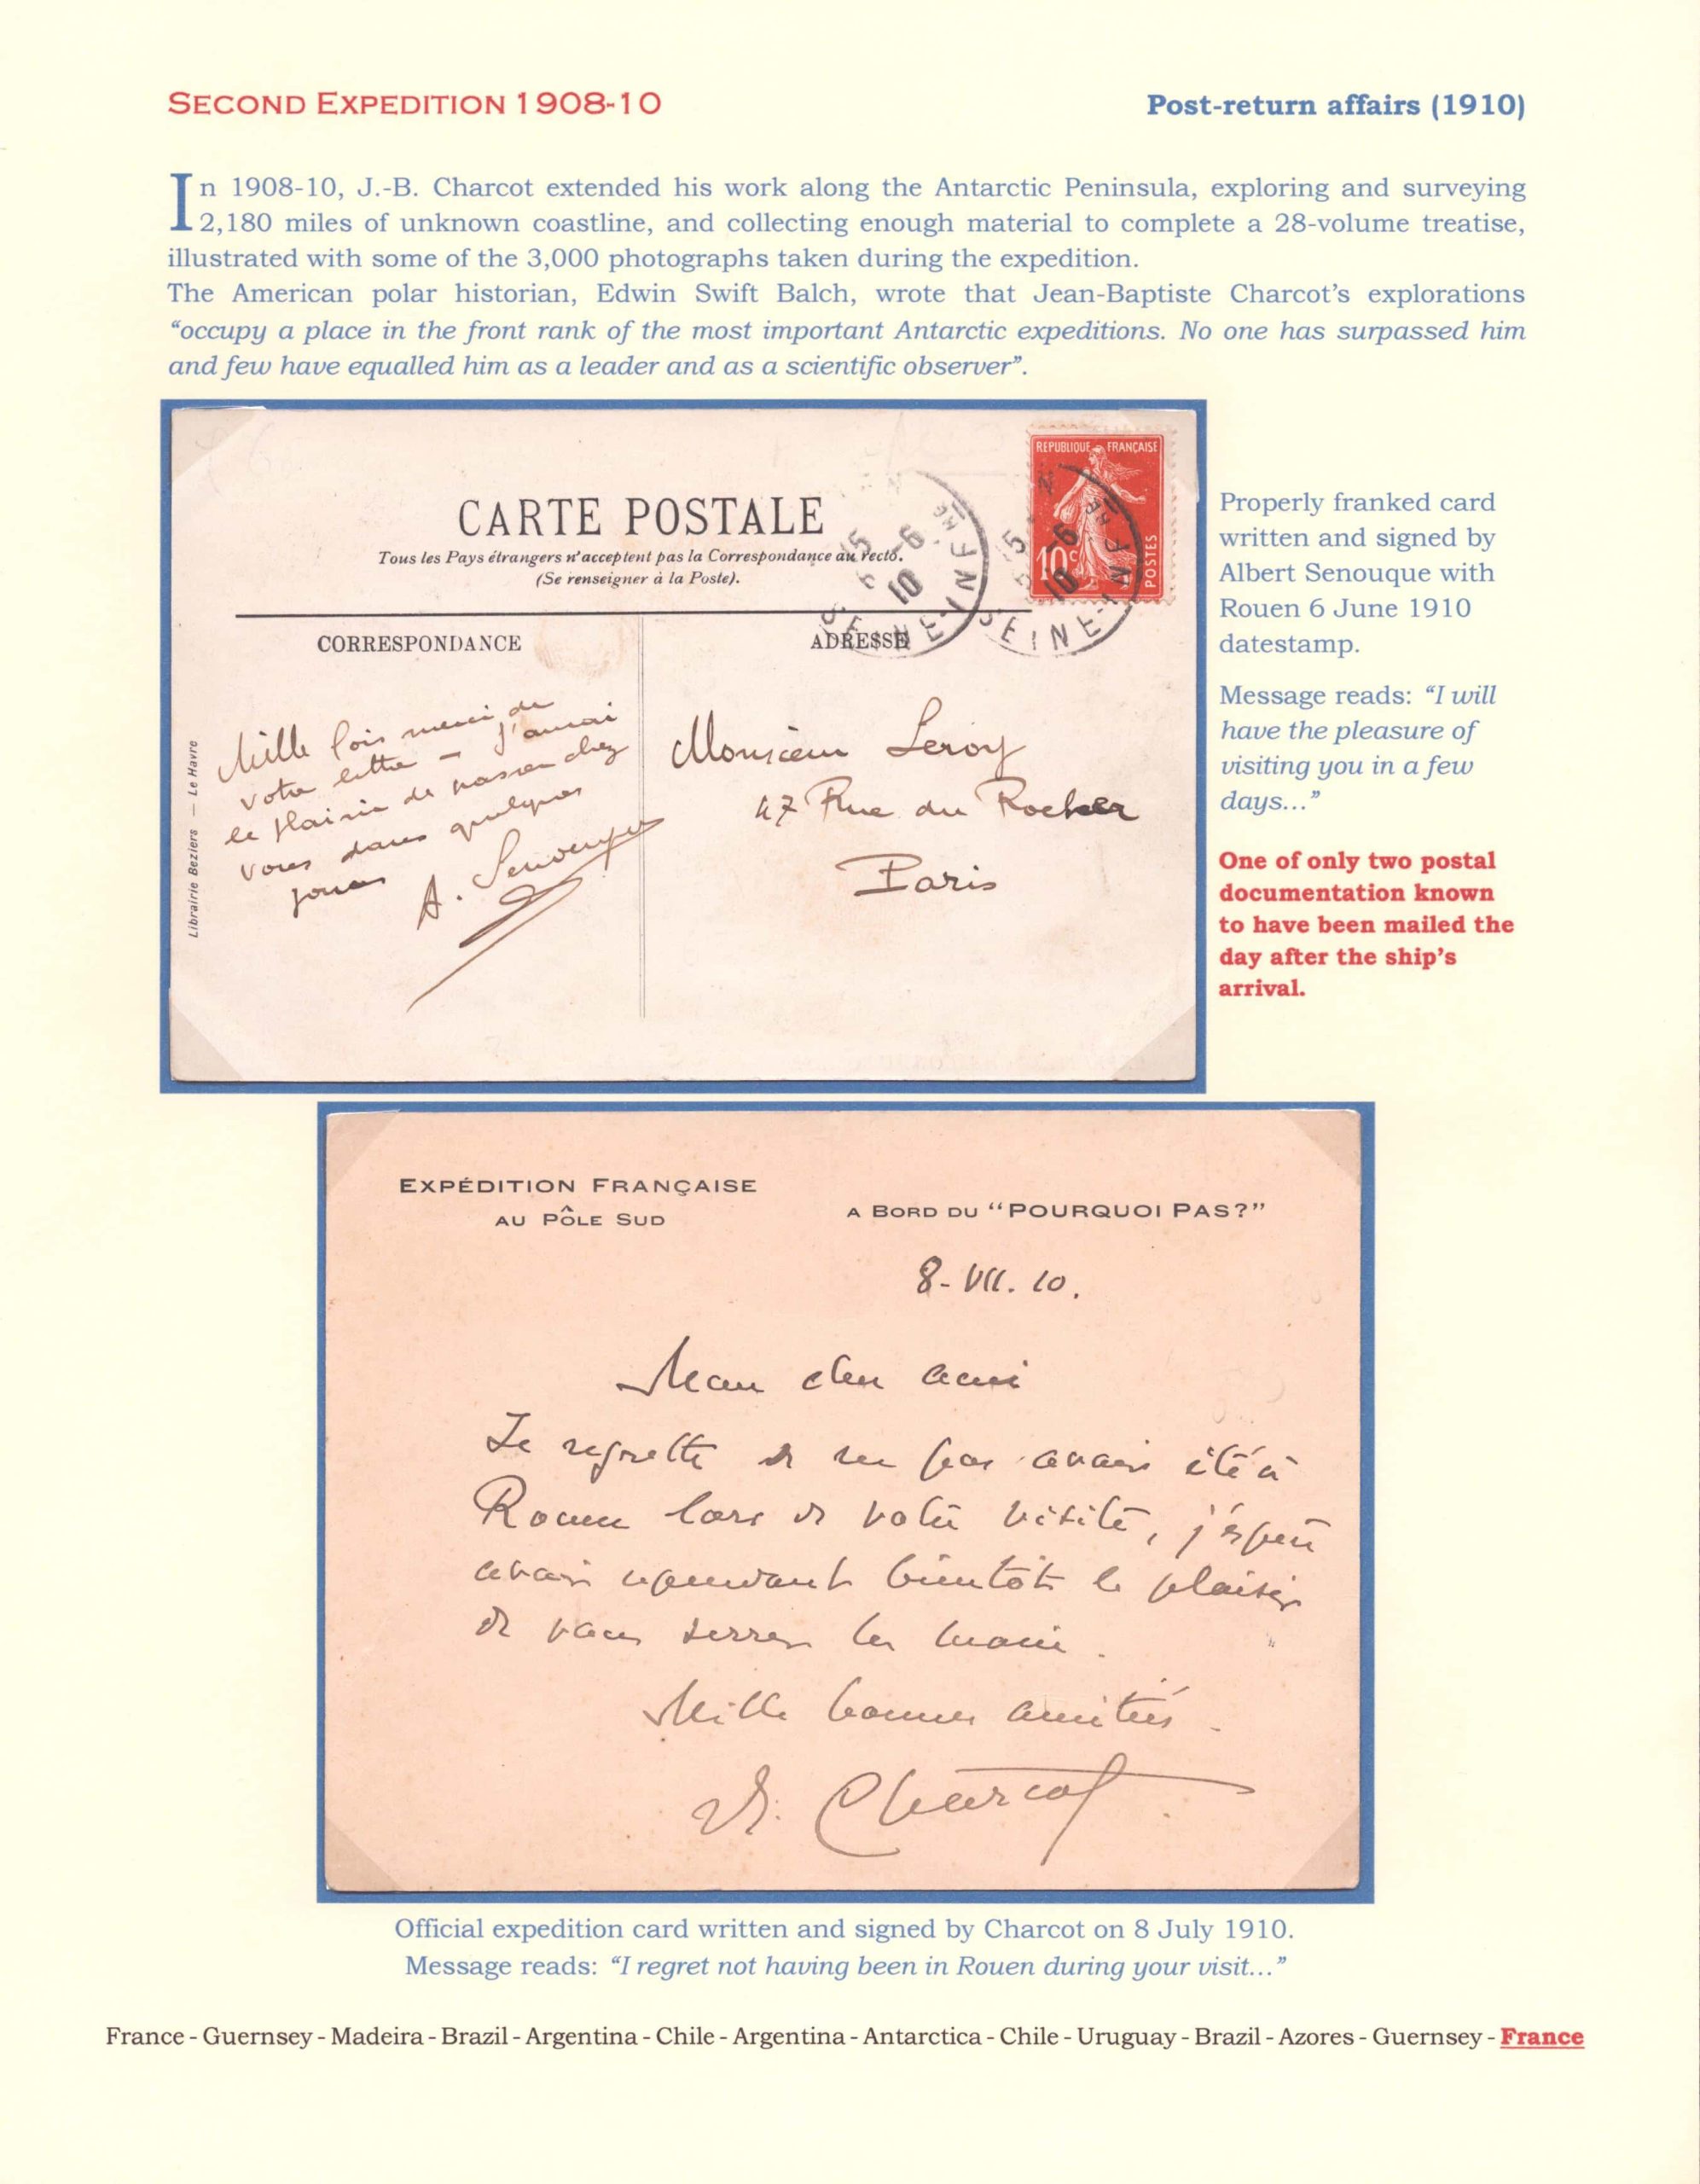 SECOND EXPEDITION 1908-10
Post-return affairs (1910)
In 1908-10, J.-B. Charcot extended his work along the Antarctic Peninsula, exploring and surveying
2,180 miles of unknown coastline, and collecting enough material to complete a 28-volume treatise,
illustrated with some of the 3,000 photographs taken during the expedition.
The American polar historian, Edwin Swift Balch, wrote that Jean-Baptiste Charcot's explorations
“occupy a place in the front rank of the most important Antarctic expeditions. No one has surpassed him
and few have equalled him as a leader and as a scientific observer”.
REPUBLIQUE FRANÇAISE
10c
POSTES
CARTE POSTALE
Tous les Pays étrangers n'acceptent pas la Correspondance au recto.
(Se renseigner à la Poste).
15 6-6 10
SEINE-INF
15 -6 10
SEINE-INF
CORRESPONDANCE
ADRESSE
Mille fois merci de
votre lettre – J'aurai
le plaisir de passer chez
vous dans quelques
jours
A. Senouque
Monsieur Leroy
47 Rue du Rocher
Paris
Librairie Beziers — Le Havre
Properly franked card
written and signed by
Albert Senouque with
Rouen 6 June 1910
datestamp.
Message reads: “I will
have the pleasure of
visiting you in a few
days...”
One of only two postal
documentation known
to have been mailed the
day after the ship's
arrival.
EXPÉDITION FRANÇAISE
AU PÔLE SUD
A BORD DU “POURQUOI PAS?”
8-VII. 10.
Mon cher ami
Je regrette de ne pas avoir été à
Rouen lors de votre visite, j'espère
avoir cependant bientôt le plaisir
de vous serrer la main.
Mille bonnes amitiés.
Charcot
Official expedition card written and signed by Charcot on 8 July 1910.
Message reads: “I regret not having been in Rouen during your visit...”
France - Guernsey - Madeira - Brazil - Argentina - Chile - Argentina - Antarctica - Chile - Uruguay - Brazil - Azores - Guernsey - France